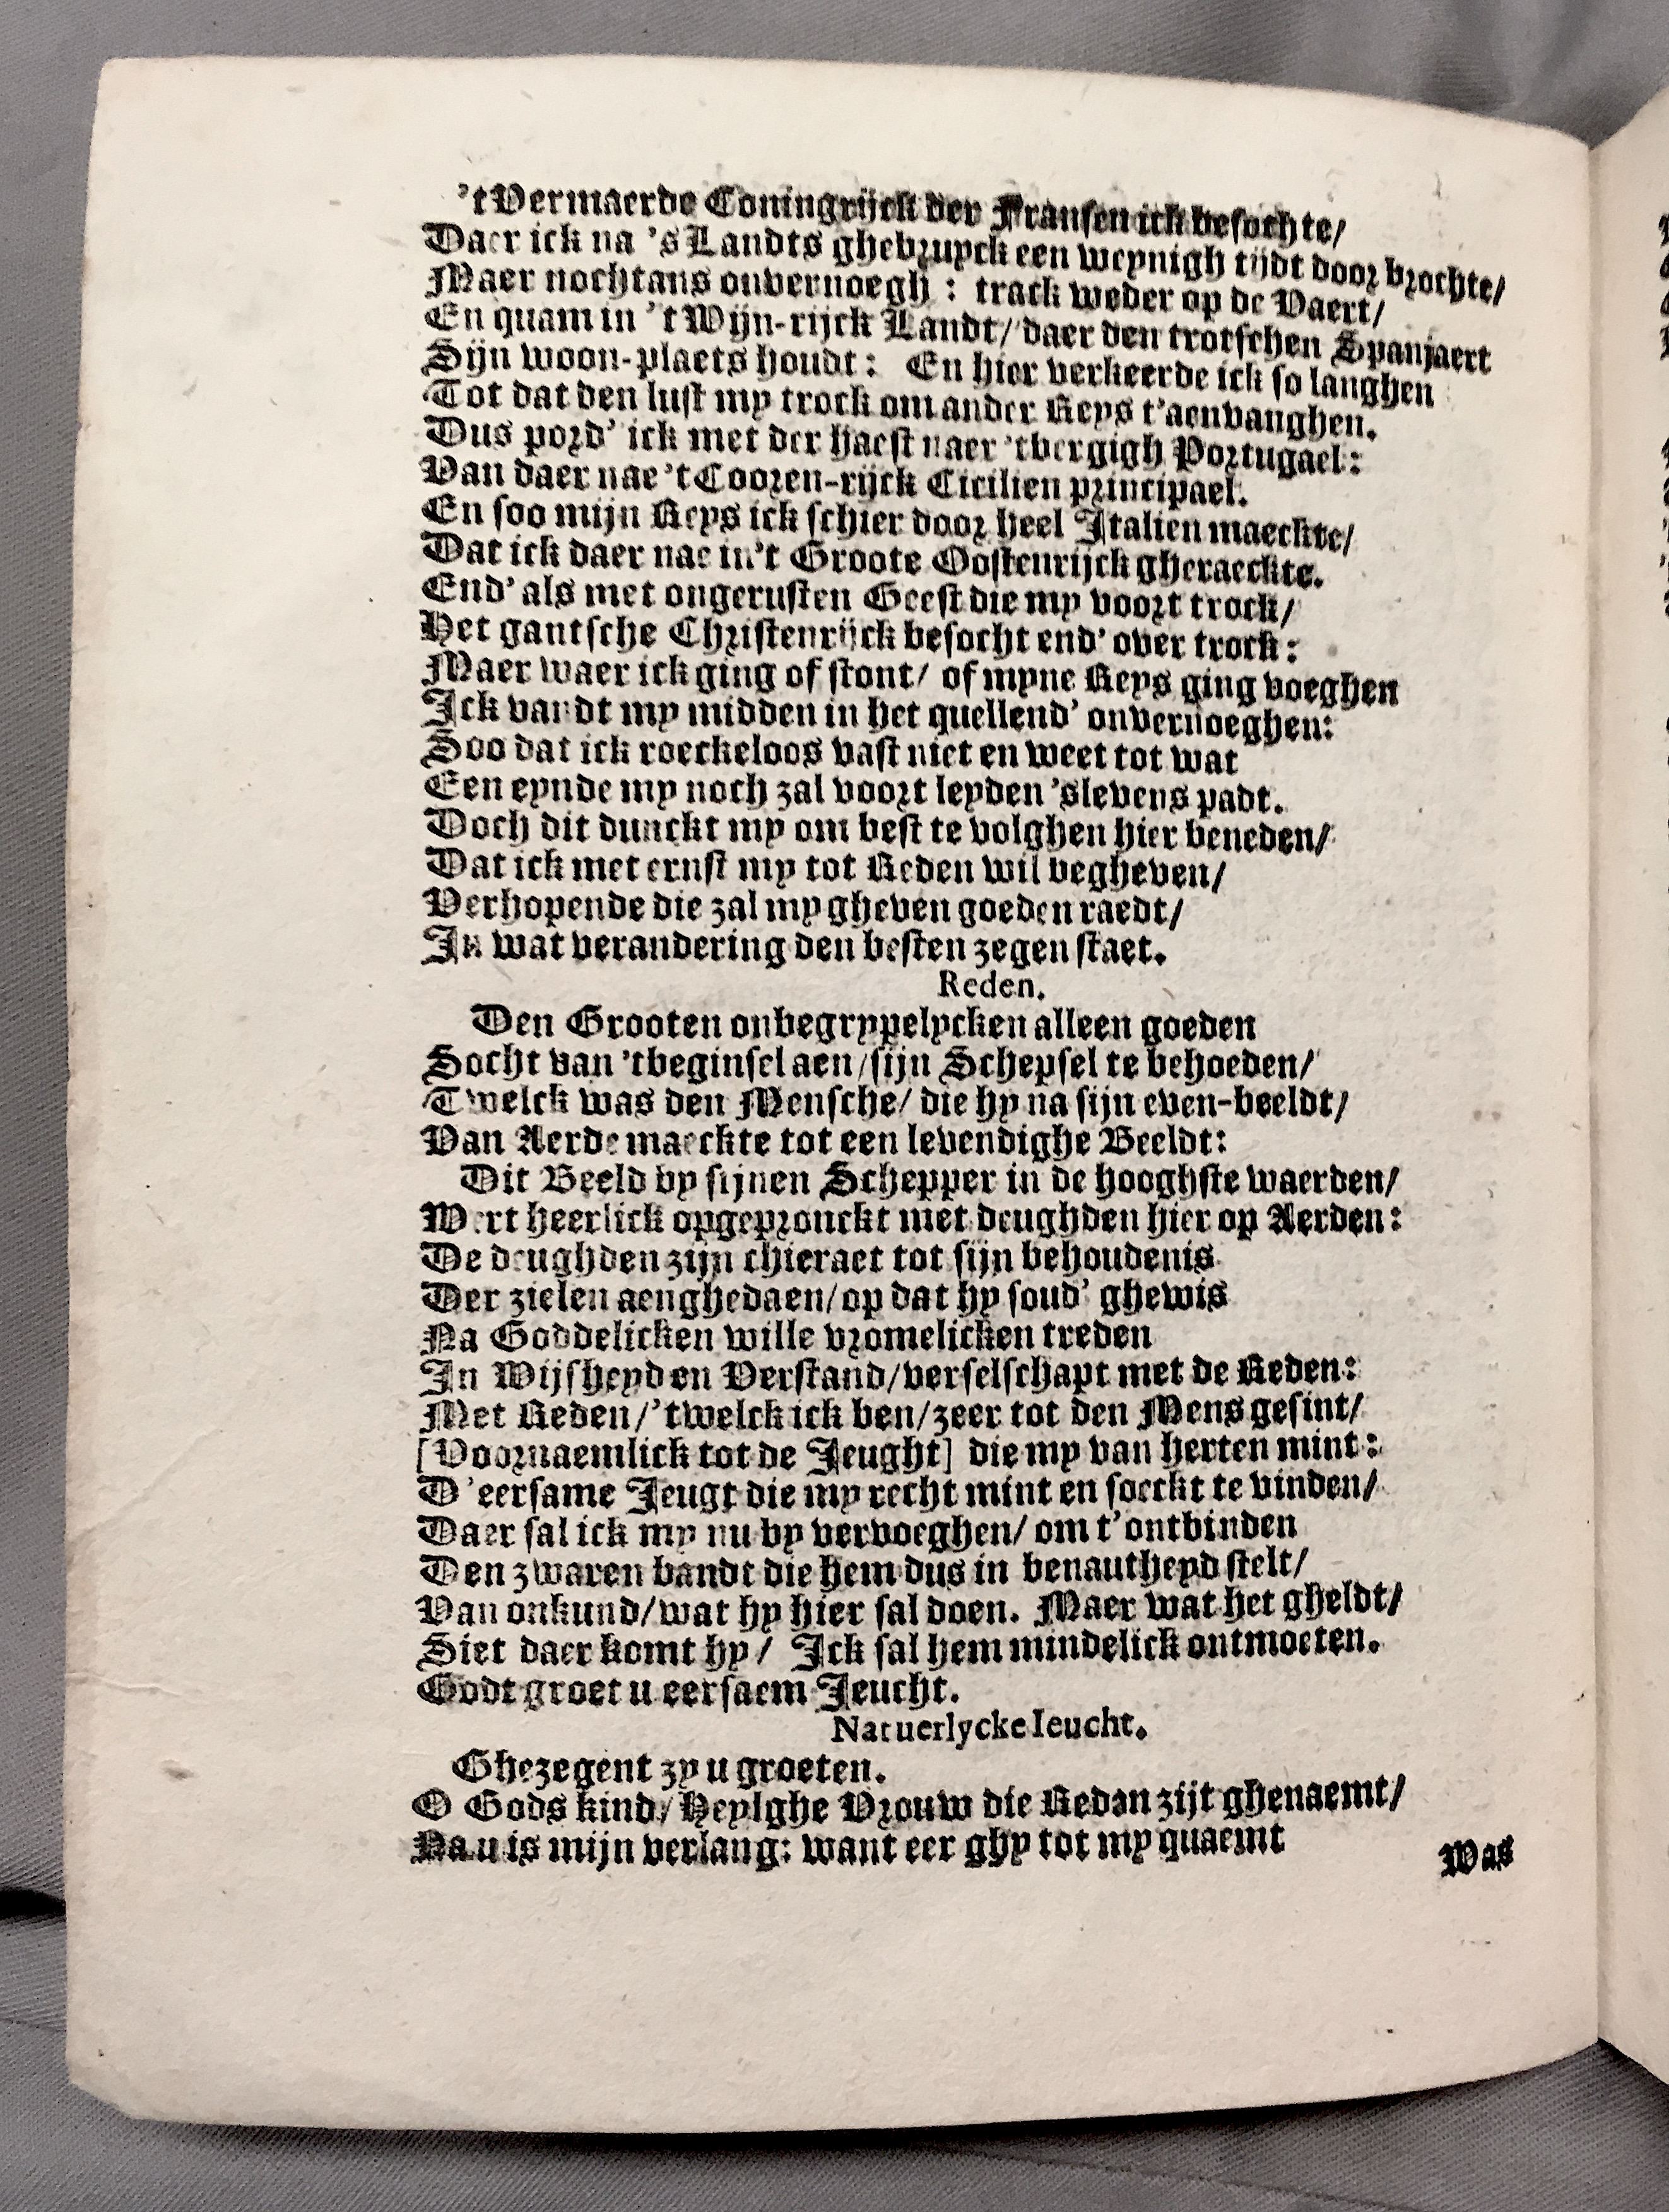 't Vermaerde Coningrijck der Fransen ick besochte/
Daer ick na 's Landts ghebruyck een weynigh tijdt door brochte/
Maer nochtans onvernoegh : track weder op de Vaert/
En quam in 't Wijn-rijck Landt/ daer den trotschen Spanjaert
Sijn woon-plaets houdt : En hier verkeerde ick so langhen
Tot dat den lust my trock om ander Reys t'aenvanghen.
Dus pord' ick met der haest naer 'tbergigh Portugael :
Van daer nae 't Cooren-rijck Cicilien principael.
En soo mijn Reys ick schier door heel Italien maeckte/
Dat ick daer nae in't Groote Oostenrijck gheraeckte.
End' als met ongerusten Geest die my voort trock/
Het gantsche Christenrijck besocht end' over trock :
Maer waer ick ging of stont/ of myne Reys ging voeghen
Ick vandt my midden in het quellend' onvernoeghen:
Soo dat ick roeckeloos vast niet en weet tot wat
Een eynde my noch zal voort leyden 'slevens padt.
Doch dit dunckt my om best te volghen hier beneden/
Dat ick met ernst my tot Reden wil begheven/
Verhopende die zal my gheven goeden raedt/
In wat verandering den besten zegen staet.
Reden.
Den Grooten onbegrypelycken alleen goeden
Socht van 'tbeginsel aen/sijn Schepsel te behoeden/
Twelck was den Mensche/ die hy na sijn even-beeldt/
Van Aerde maeckte tot een levendighe Beeldt:
Dit Beeld by sijnen Schepper in de hooghste waerden/
Wert heerlick opgepronckt met deughden hier op Aerden:
De deughden zijn chieraet tot sijn behoudenis
Der zielen aenghedaen/op dat hy soud' ghewis
Na Goddelicken wille vromelicken treden
In Wijsheyd en Verstand/verselschapt met de Reden:
Met Reden/'twelck ick ben/zeer tot den Mens gesint/
[Voornaemlick tot de Jeught] die my van herten mint :
D'eersame Jeugt die my recht mint en soeckt te vinden/
Daer sal ick my nu by vervoeghen/ om t'ontbinden
Den zwaren bandt die hem dus in benautheyd stelt/
Van onkund/wat hy hier sal doen. Maer wat het gheldt/
Siet daer komt hy/ Ick sal hem mindelick ontmoeten.
Godt groet u eersaem Jeucht.
Natuerlycke Ieucht.
Ghezegent zy u groeten.
O Gods kind/ Heylghe Vrouw die Reden zijt ghenaemt/
Na u is mijn verlang: want eer ghy tot my quaemt
Was